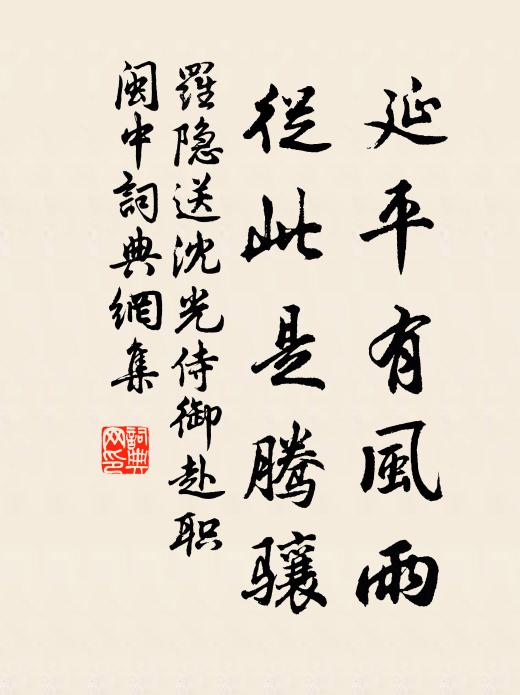 延平有風雨
從此是騰驤
羅隐送沈光侍御赴职
闽中詞典網集
詞典网印